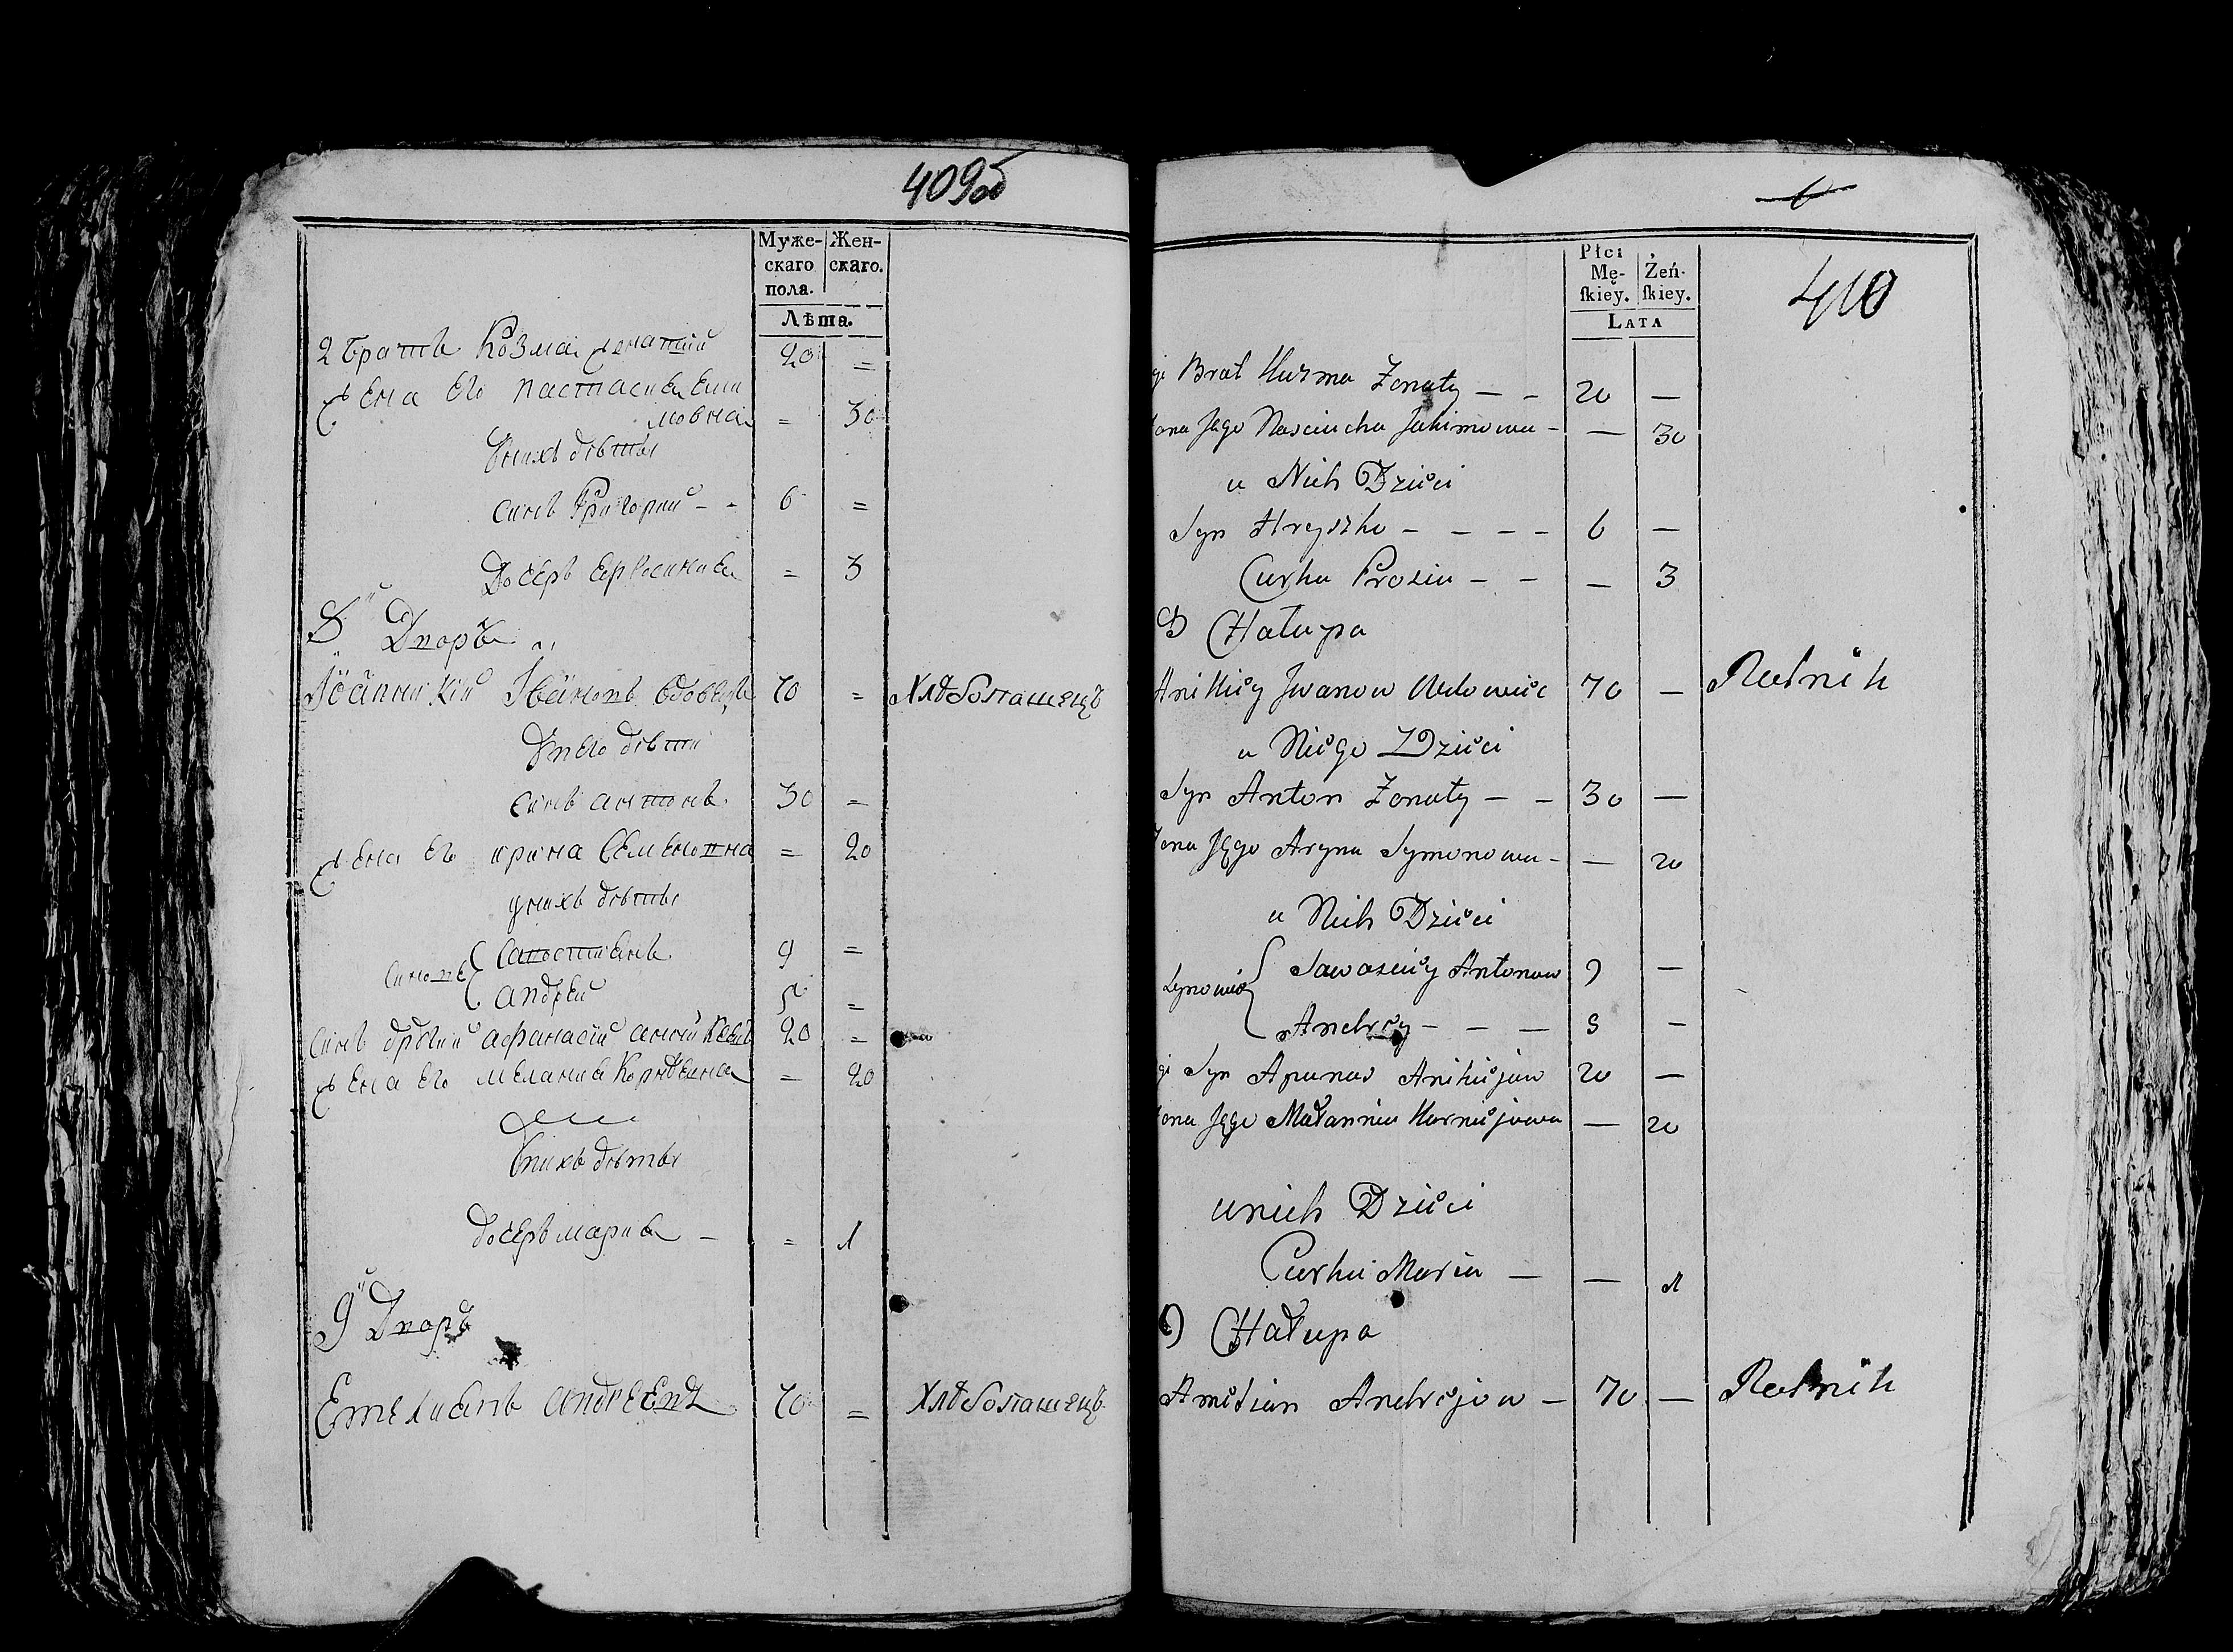 409об
Муже-
скаго
пола.
Жен-
скаго.
Лѣта.
2 братъ Козма женатый 20 =
жена его настасия еки
мовна = 30
У нихъ дѣты
синъ Григорий - - 6 =
Дочеръ ефросиния = 3
8й Дворъ
Иоаникий Ивановъ вдовецъ 70 = Хлѣбопашецъ
У него дѣти
синъ антонъ 30 =
жена его ирина Семеновна = 20
у нихъ дѣты
Синовѣ Савостиянъ 9 =
андрей 5 =
Синъ други афанасий 20 =
жена его мелания Корнѣевна = 20
У нихъ дѣты
дочеръ мария - = 1
9й Дворъ
Емелиянъ андреевъ 70 = Хлѣбопашецъ
6
410
Płci
Mę-
ſkiey.
Żeń-
ſkiey.
LATA
gi Brat Kuzma Żonaty — - 20 —
ona Jego Nasciucha Jakimowa - — 30
u Nich Dzieci
Syn Hryszko - - - - 6 —
Curka Prosia - - — 3
8 CHałupa
Anikiey Jwanow Wdowiec 70 — Rolnik
u Niego Dzieci
Syn Anton Żonaty — - 30 —
ona Jego Aryna Symonowa - — 20
u Nich Dzieci
Synowie Sawasciey Antonow 9 —
Andrey - — — 5 —
gi Syn Apanas Anikiejow 20 —
ona Jego Małannia Karniejowa — 20
u nich Dzieci
Curka Maria — — 1
9 CHałupa
Amelian Andrejow — 70 — Rolnik